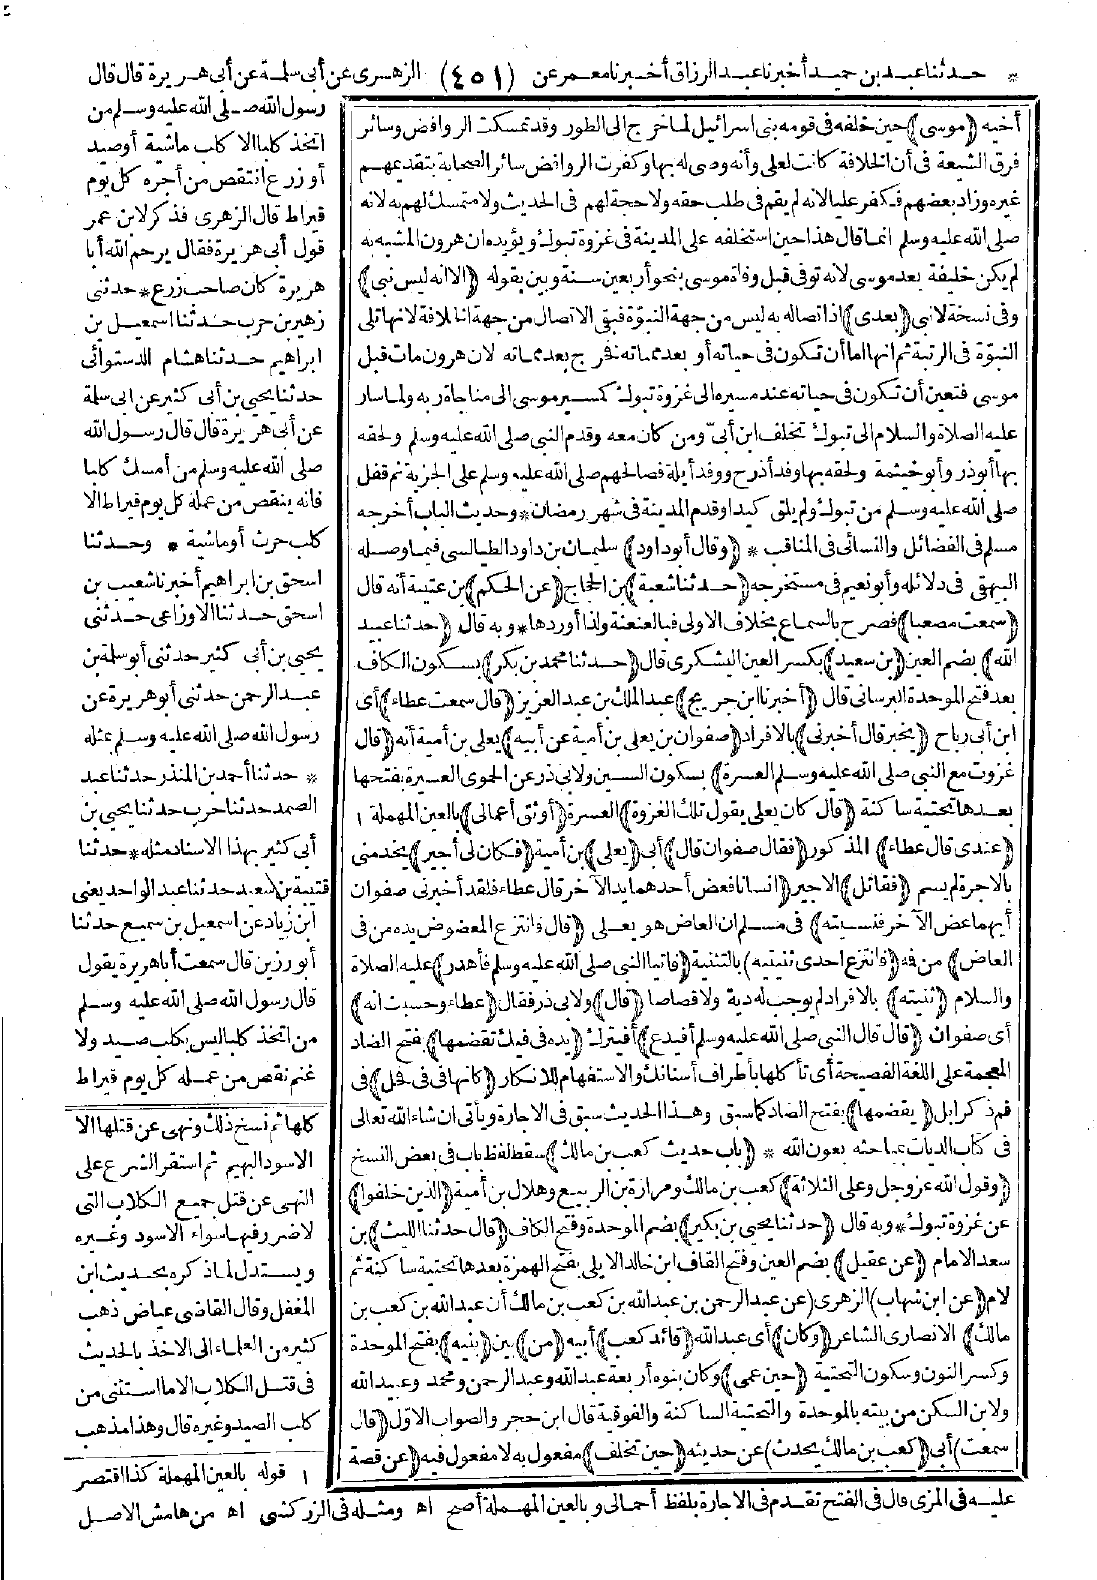 * حدثنا عبد بن حميد أخبرنا عبد الرزاق أخبرنا معمر عن (٤٥١) الزهرى عن أبى سلمة عن أبى هريرة قال قال
أخيه ﴿موسى﴾ حين خلفه فى قومه بنى اسرائيل لما خرج الى الطور وقد تمسكت الروافض وسائر
فرق الشيعة فى أن الخلافة كانت لعلى وأنه وصى له بها وكفرت الروافض سائر الصحابة بتقديمهم
غيره وزاد بعضهم فكفر عليا لانه لم يقم فى طلب حقه ولا حجة لهم فى الحديث ولا متمسك لهم به لانه
صلى الله عليه وسلم انما قال هذا حين استخلفه على المدينة فى غزوة تبوك ويؤيده ان هرون المشبه به
لم يكن خليفة بعد موسى لانه توفى قبل وفاة موسى بنحو أربعين سنة وبين بقوله ﴿الا انه ليس نبى﴾
وفى نسخة لا نبى ﴿بعدى﴾ اذ اتصاله به ليس من جهة النبوّة فبقى الاتصال من جهة الخلافة لانها تلى
النبوّة فى الرتبة ثم انها اما أن تكون فى حياته أو بعد مماته نخرج بعد مماته لان هرون مات قبل
موسى فتعين أن تكون فى حياته عند مسيره الى غزوة تبوك كمسير موسى الى مناجاة ربه ولما سار
عليه الصلاة والسلام الى تبوك تخلف ابن أبىّ ومن كان معه وقدم النبى صلى الله عليه وسلم ولحقه
بها أبو ذر وأبو خيثمة ولحقه بها وفد أذرح ووفد أيلة فصالحهم صلى الله عليه وسلم على الجزية ثم قفل
صلى الله عليه وسلم من تبوك ولم يلق كيدا وقدم المدينة فى شهر رمضان * وحديث الباب أخرجه
مسلم فى الفضائل والنسائى فى المناقب * ﴿وقال أبو داود﴾ سليمان بن داود الطيالسى فيما وصله
البيهقى فى دلائله وأبو نعيم فى مستخرجه ﴿حدثنا شعبة﴾ بن الحجاج ﴿عن الحكم﴾ بن عتيبة أنه قال
﴿سمعت مصعبا﴾ فصرح بالسماع بخلاف الاولى فبالعنعنة ولذا أوردها * وبه قال ﴿حدثنا عبيد
الله﴾ بضم العين ﴿بن سعيد﴾ بكسر العين اليشكرى قال ﴿حدثنا محمد بن بكر﴾ بسكون الكاف
بعد فتح الموحدة البرسانى قال ﴿أخبرنا ابن جريج﴾ عبد الملك بن عبد العزيز ﴿قال سمعت عطاء﴾ أى
ابن أبى رباح ﴿يخبر قال أخبرنى﴾ بالافراد ﴿صفوان بن يعلى بن أمية عن أبيه﴾ يعلى بن أمية أنه ﴿قال
غزوت مع النبى صلى الله عليه وسلم العسرة﴾ بسكون السين ولابى ذر عن الحموى العسيرة بفتحها
بعدها تحتية ساكنة ﴿قال كان يعلى يقول تلك الغزوة﴾ العسرة ﴿أوثق أعمالى﴾ بالعين المهملة ١
﴿عندى قال عطاء﴾ المذكور ﴿فقال صفوان قال﴾ أبى ﴿يعلى﴾ بن أمية ﴿فكان لى أجير﴾ يخدمنى
بالاجرة لم يسم ﴿فقاتل﴾ الاجير ﴿انسانا فعض أحدهما يد الآخر قال عطاء فلقد أخبرنى صفوان
أيهما عض الآخر فنسيته﴾ فى مسلم ان العاض هو يعلى ﴿قال فانتزع المعضوض يده من فى
العاض﴾ من فه ﴿فانتزع احدى ثنيتيه﴾ بالتثنية ﴿فأتيا النبى صلى الله عليه وسلم فأهدر﴾ عليه الصلاة
والسلام ﴿ثنيته﴾ بالافراد لم يوجب له دية ولا قصاصا ﴿قال﴾ ولابى ذر فقال ﴿عطاء وحسبت انه﴾
أى صفوان ﴿قال قال النبى صلى الله عليه وسلم أفيدع﴾ أفيترك ﴿يده فى فيك تقضمها﴾ بفتح الضاد
المعجمة على اللغة الفصيحة أى تأكلها بأطراف أسنانك والاستفهام للانكار ﴿كأنها فى فى فحل﴾ فى
فم ذكر ابل ﴿يقضمها﴾ بفتح الضاد كما سبق وهذا الحديث سبق فى الاجارة ويأتى ان شاء الله تعالى
فى كتاب الديات بمباحثه بعون الله * ﴿باب حديث كعب بن مالك﴾ سقط لفظ باب فى بعض النسخ
﴿وقول الله عز وجل وعلى الثلاثة﴾ كعب بن مالك ومرارة بن الربيع وهلال بن أمية ﴿الذين خلفوا﴾
عن غزوة تبوك * وبه قال ﴿حدثنا يحيى بن بكير﴾ بضم الموحدة وفتح الكاف ﴿قال حدثنا الليث﴾ بن
سعد الامام ﴿عن عقيل﴾ بضم العين وفتح القاف ابن خالد الايلى بفتح الهمزة بعدها تحتية ساكنة ثم
لام ﴿عن ابن شهاب﴾ الزهرى ﴿عن عبد الرحمن بن عبد الله بن كعب بن مالك أن عبد الله بن كعب بن
مالك﴾ الانصارى الشاعر ﴿وكان﴾ أى عبد الله ﴿قائد كعب﴾ أبيه ﴿من﴾ بين ﴿بنيه﴾ بفتح الموحدة
وكسر النون وسكون التحتية ﴿حين عمى﴾ وكان بنوه أربعة عبد الله وعبد الرحمن ومحمد وعبيد الله
ولابن السكن من بيته بالموحدة والتحتية الساكنة والفوقية قال ابن حجر والصواب الاوّل ﴿قال
سمعت﴾ أبى ﴿كعب بن مالك يحدث﴾ عن حديثه ﴿حين تخلف﴾ مفعول به لا مفعول فيه ﴿عن قصة
رسول الله صلى الله عليه وسلم من
اتخذ كلبا الا كلب ماشية أو صيد
أو زرع انتقص من أجره كل يوم
قيراط قال الزهرى فذكر لابن عمر
قول أبى هريرة فقال يرحم الله أبا
هريرة كان صاحب زرع * حدثنى
زهير بن حرب حدثنا اسمعيل بن
ابراهيم حدثنا هشام الدستوائى
حدثنا يحيى بن أبى كثير عن ابى سلمة
عن أبى هريرة قال قال رسول الله
صلى الله عليه وسلم من أمسك كلبا
فانه ينقص من عمله كل يوم قيراط الا
كلب حرث أو ماشية * وحدثنا
اسحق بن ابراهيم أخبرنا شعيب بن
اسحق حدثنا الاوزاعى حدثنى
يحيى بن أبى كثير حدثنى أبو سلمة بن
عبد الرحمن حدثنى أبو هريرة عن
رسول الله صلى الله عليه وسلم بمثله
* حدثنا أحمد بن المنذر حدثنا عبد
الصمد حدثنا حرب حدثنا يحيى بن
أبى كثير بهذا الاسناد مثله * حدثنا
قتيبة بن سعيد حدثنا عبد الواحد يعنى
ابن زياد عن اسمعيل بن سميع حدثنا
أبو رزين قال سمعت أبا هريرة يقول
قال رسول الله صلى الله عليه وسلم
من اتخذ كلبا ليس بكلب صيد ولا
غنم نقص من عمله كل يوم قيراط
كلها ثم نسخ ذلك ونهى عن قتلها الا
الاسود البهيم ثم استقر الشرع على
النهى عن قتل جميع الكلاب التى
لا ضرر فيها سواء الاسود وغيره
ويستدل لما ذكره بحديث ابن
المغفل وقال القاضى عياض ذهب
كثير من العلماء الى الاخذ بالحديث
فى قتل الكلاب الا ما استثنى من
كلب الصيد وغيره قال وهذا مذهب
١ قوله بالعين المهملة كذا اقتصر
عليه فى المزى قال فى الفتح تقدم فى الاجارة بلفظ أحمالى وبالعين المهملة أصح اه ومثله فى الزركشى اه من هامش الاصل